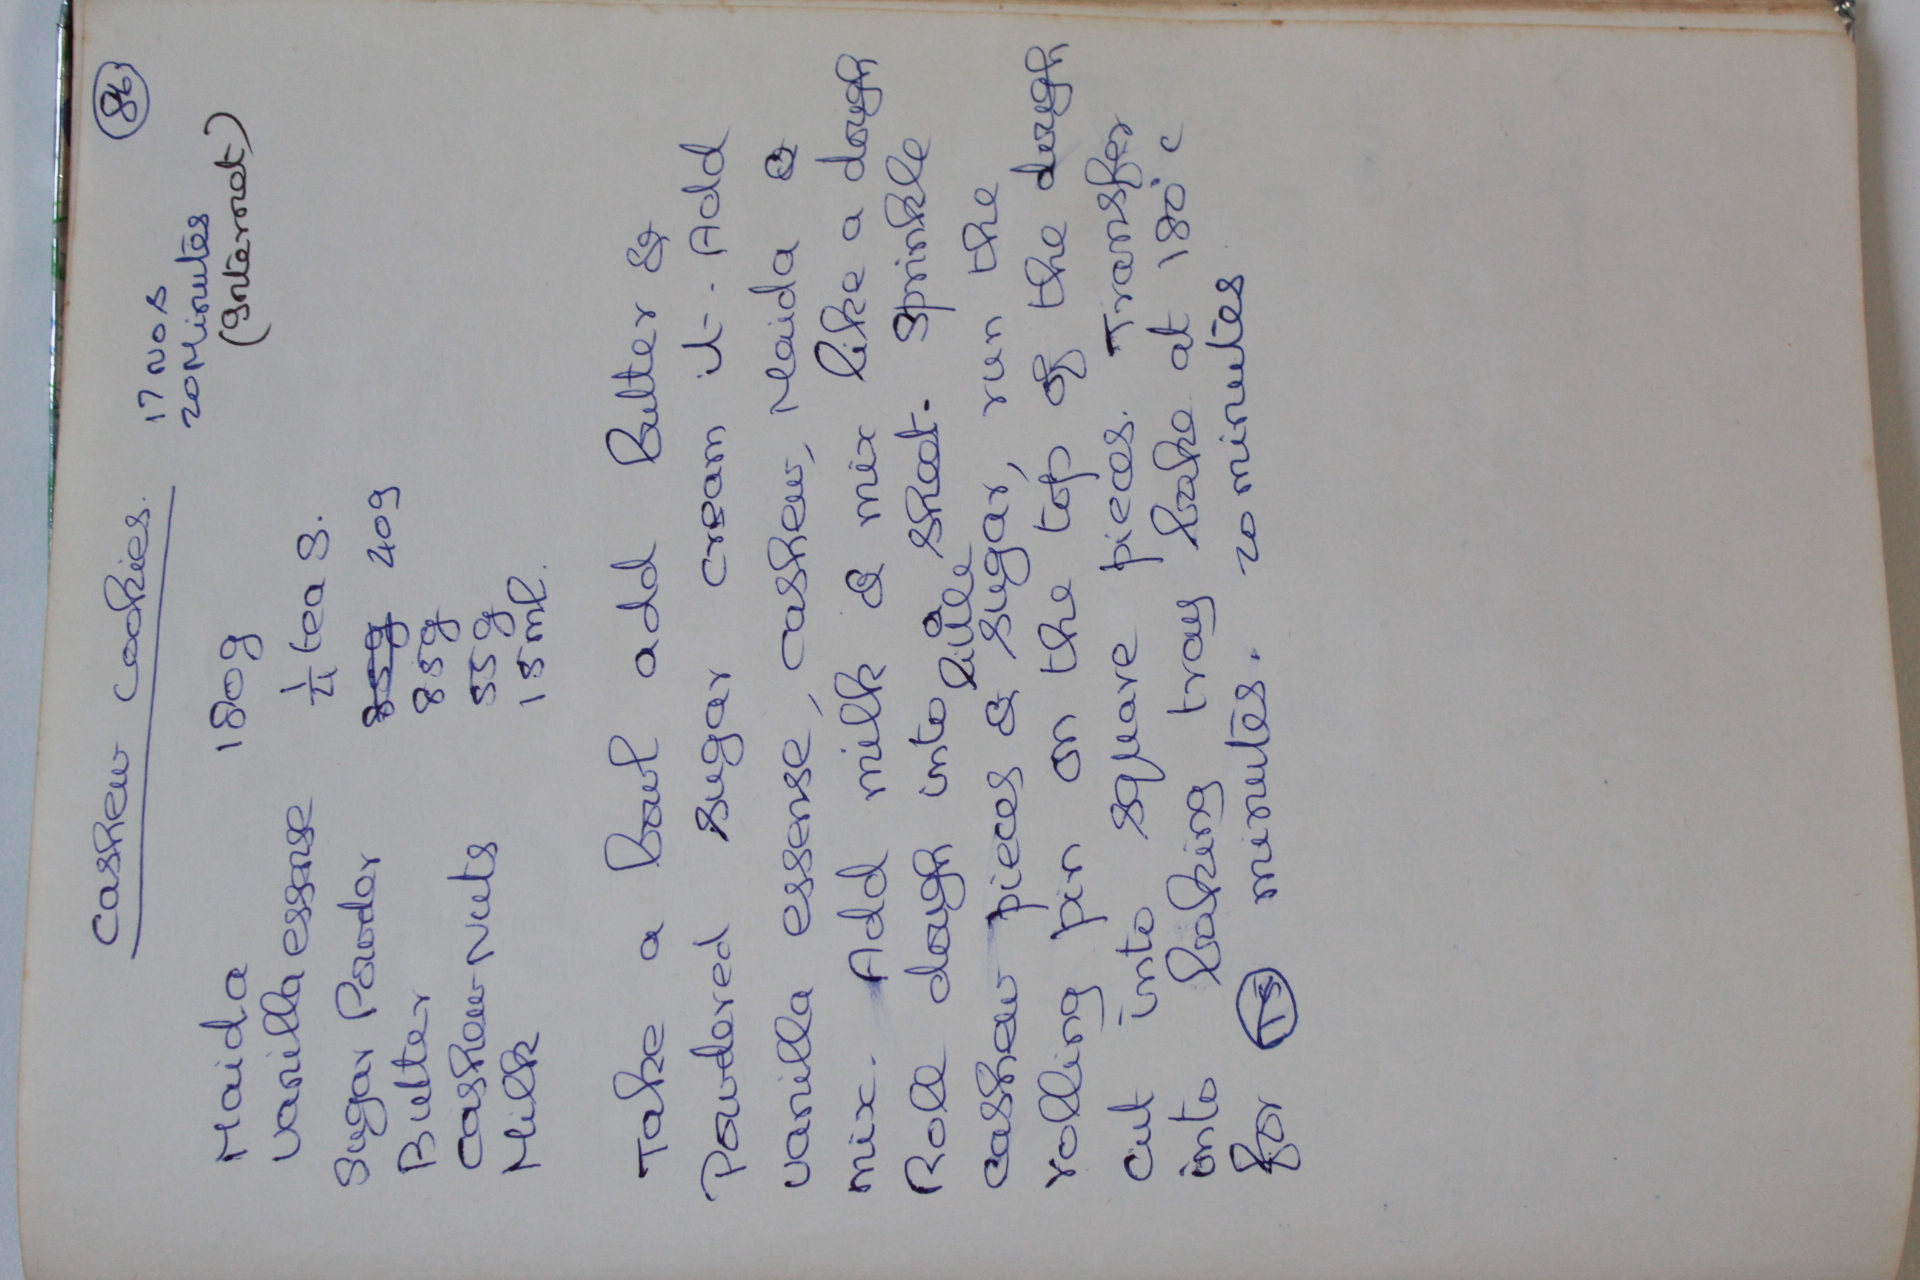 86
Cashew Cookies.
17 Nos
20 Minutes
(Internet)
Maida 180g
Vanilla essnse 1/4 tea S.
Sugar Powder 35g 40g
Butter 85g
Cashew-Nuts 55g
Milk 15 ml.
Take a bowl add Butter &
Powdered sugar cream it. Add
vanilla essense, cashew, Maida &
mix. Add milk & mix like a dough
Roll dough into a sheet. Sprinkle
little
cashew pieces & sugar, run the
rolling pin on the top of the dough
cut into square pieces. Transfer
into baking tray bake at 180°c
for 15 minutes. 20 minutes